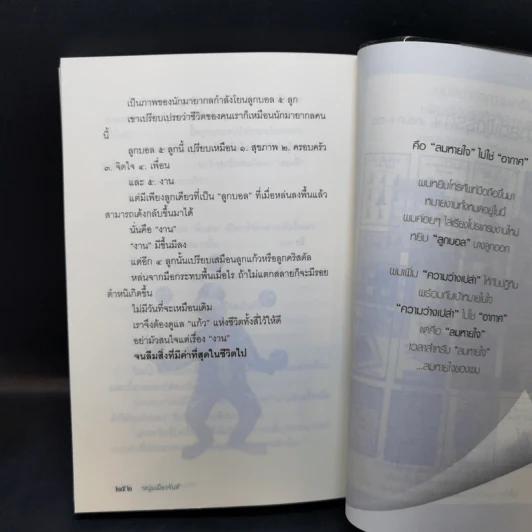 เป็นภาพของนักมายากลกำลังโยนลูกบอล ๕ ลูก
เขาเปรียบเปรยว่าชีวิตของคนเราก็เหมือนนักมายากลคน
นี้
ลูกบอล ๕ ลูกนี้ เปรียบเหมือน ๑. สุขภาพ ๒. ครอบครัว
๓. จิตใจ ๔. เพื่อน
และ ๕. งาน
แต่มีเพียงลูกเดียวที่เป็น "ลูกบอล" ที่เมื่อหล่นลงพื้นแล้ว
สามารถเด้งกลับขึ้นมาได้
นั่นคือ "งาน"
"งาน" มีขึ้นมีลง
แต่อีก ๔ ลูกนั้นเปรียบเสมือนลูกแก้วหรือลูกคริสตัล
หล่นจากมือกระทบพื้นเมื่อไร ถ้าไม่แตกสลายก็จะมีรอย
ตำหนิเกิดขึ้น
ไม่มีวันที่จะเหมือนเดิม
เราจึงต้องดูแล "แก้ว" แห่งชีวิตทั้งสี่ไว้ให้ดี
อย่ามัวสนใจแต่เรื่อง "งาน"
จนลืมสิ่งที่มีค่าที่สุดในชีวิตไป
๒๕๒ หนุ่มเมืองจันท์
คือ "ลมหายใจ" ไม่ใช่ "อากาศ"
ผมหยิบโทรศัพท์มือถือขึ้นมา
หมายงานทั้งหมดอยู่ในนี้
ผมค่อยๆ ไล่เรียงโปรแกรมงานใหม่
หยิบ "ลูกบอล" บางลูกออก
ผมเพิ่ม "ความว่างเปล่า" ให้กับปฏิทิน
พร้อมกับเป้าหมายในใจ
"ความว่างเปล่า" ไม่ใช่ "อากาศ"
แต่คือ "ลมหายใจ"
เวลาสำหรับ "ลมหายใจ"
...ลมหายใจของผม